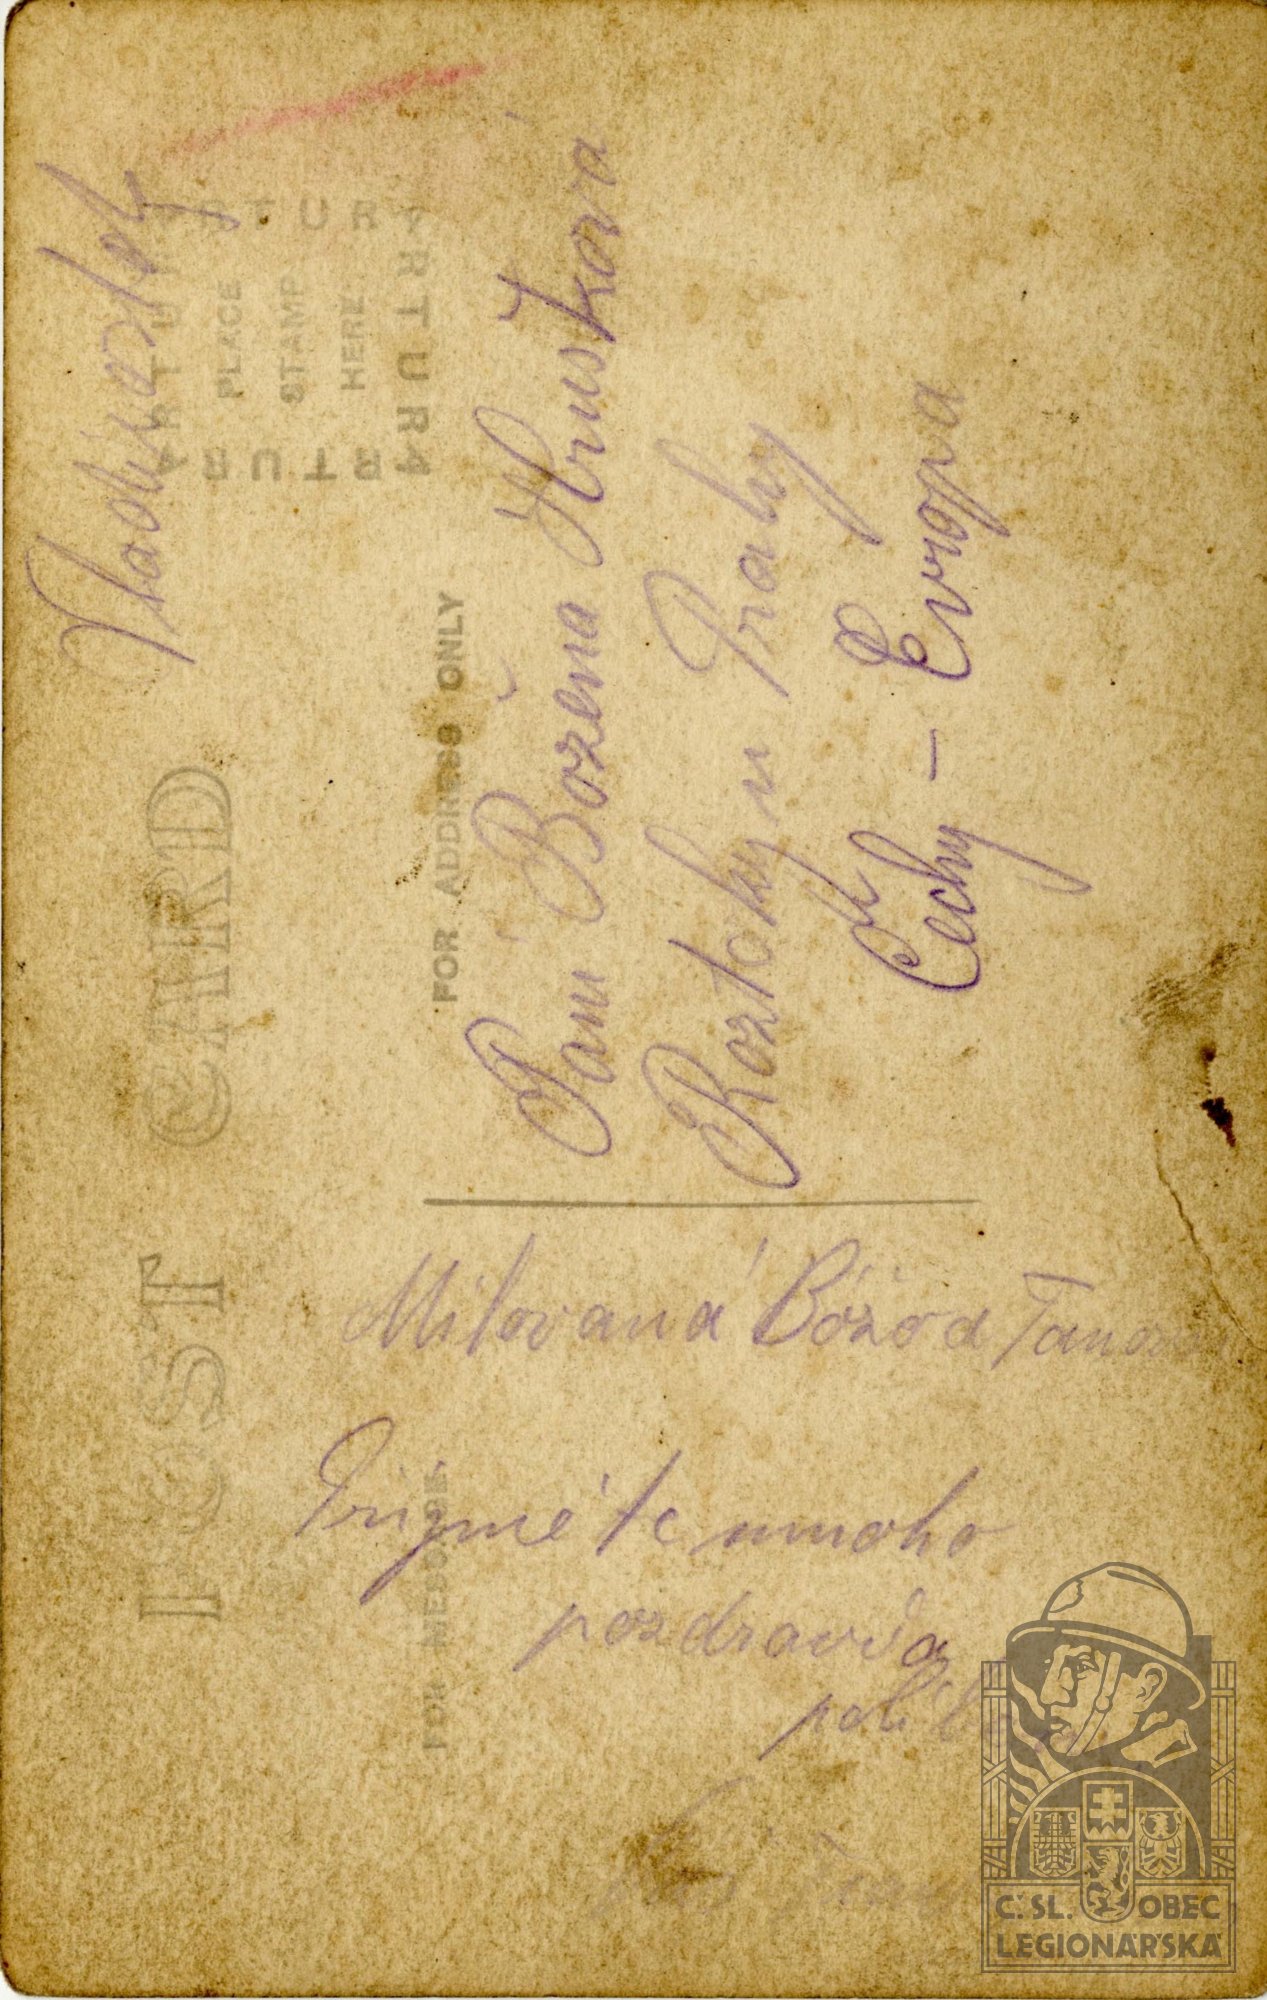 Vladivostok
POST CARD
ARTURA
ARTURA
ARTURA
ARTURA
PLACE
STAMP
HERE
FOR ADDRESS ONLY
Paní Božena Hrušková
Roztoky u Prahy
Čechy – Evropa
FOR MESSAGE
Milovaná Bóžo a
Přijměte mnoho
pozdravů a
Váš
Č. SL. OBEC
LEGIONÁŘSKÁ